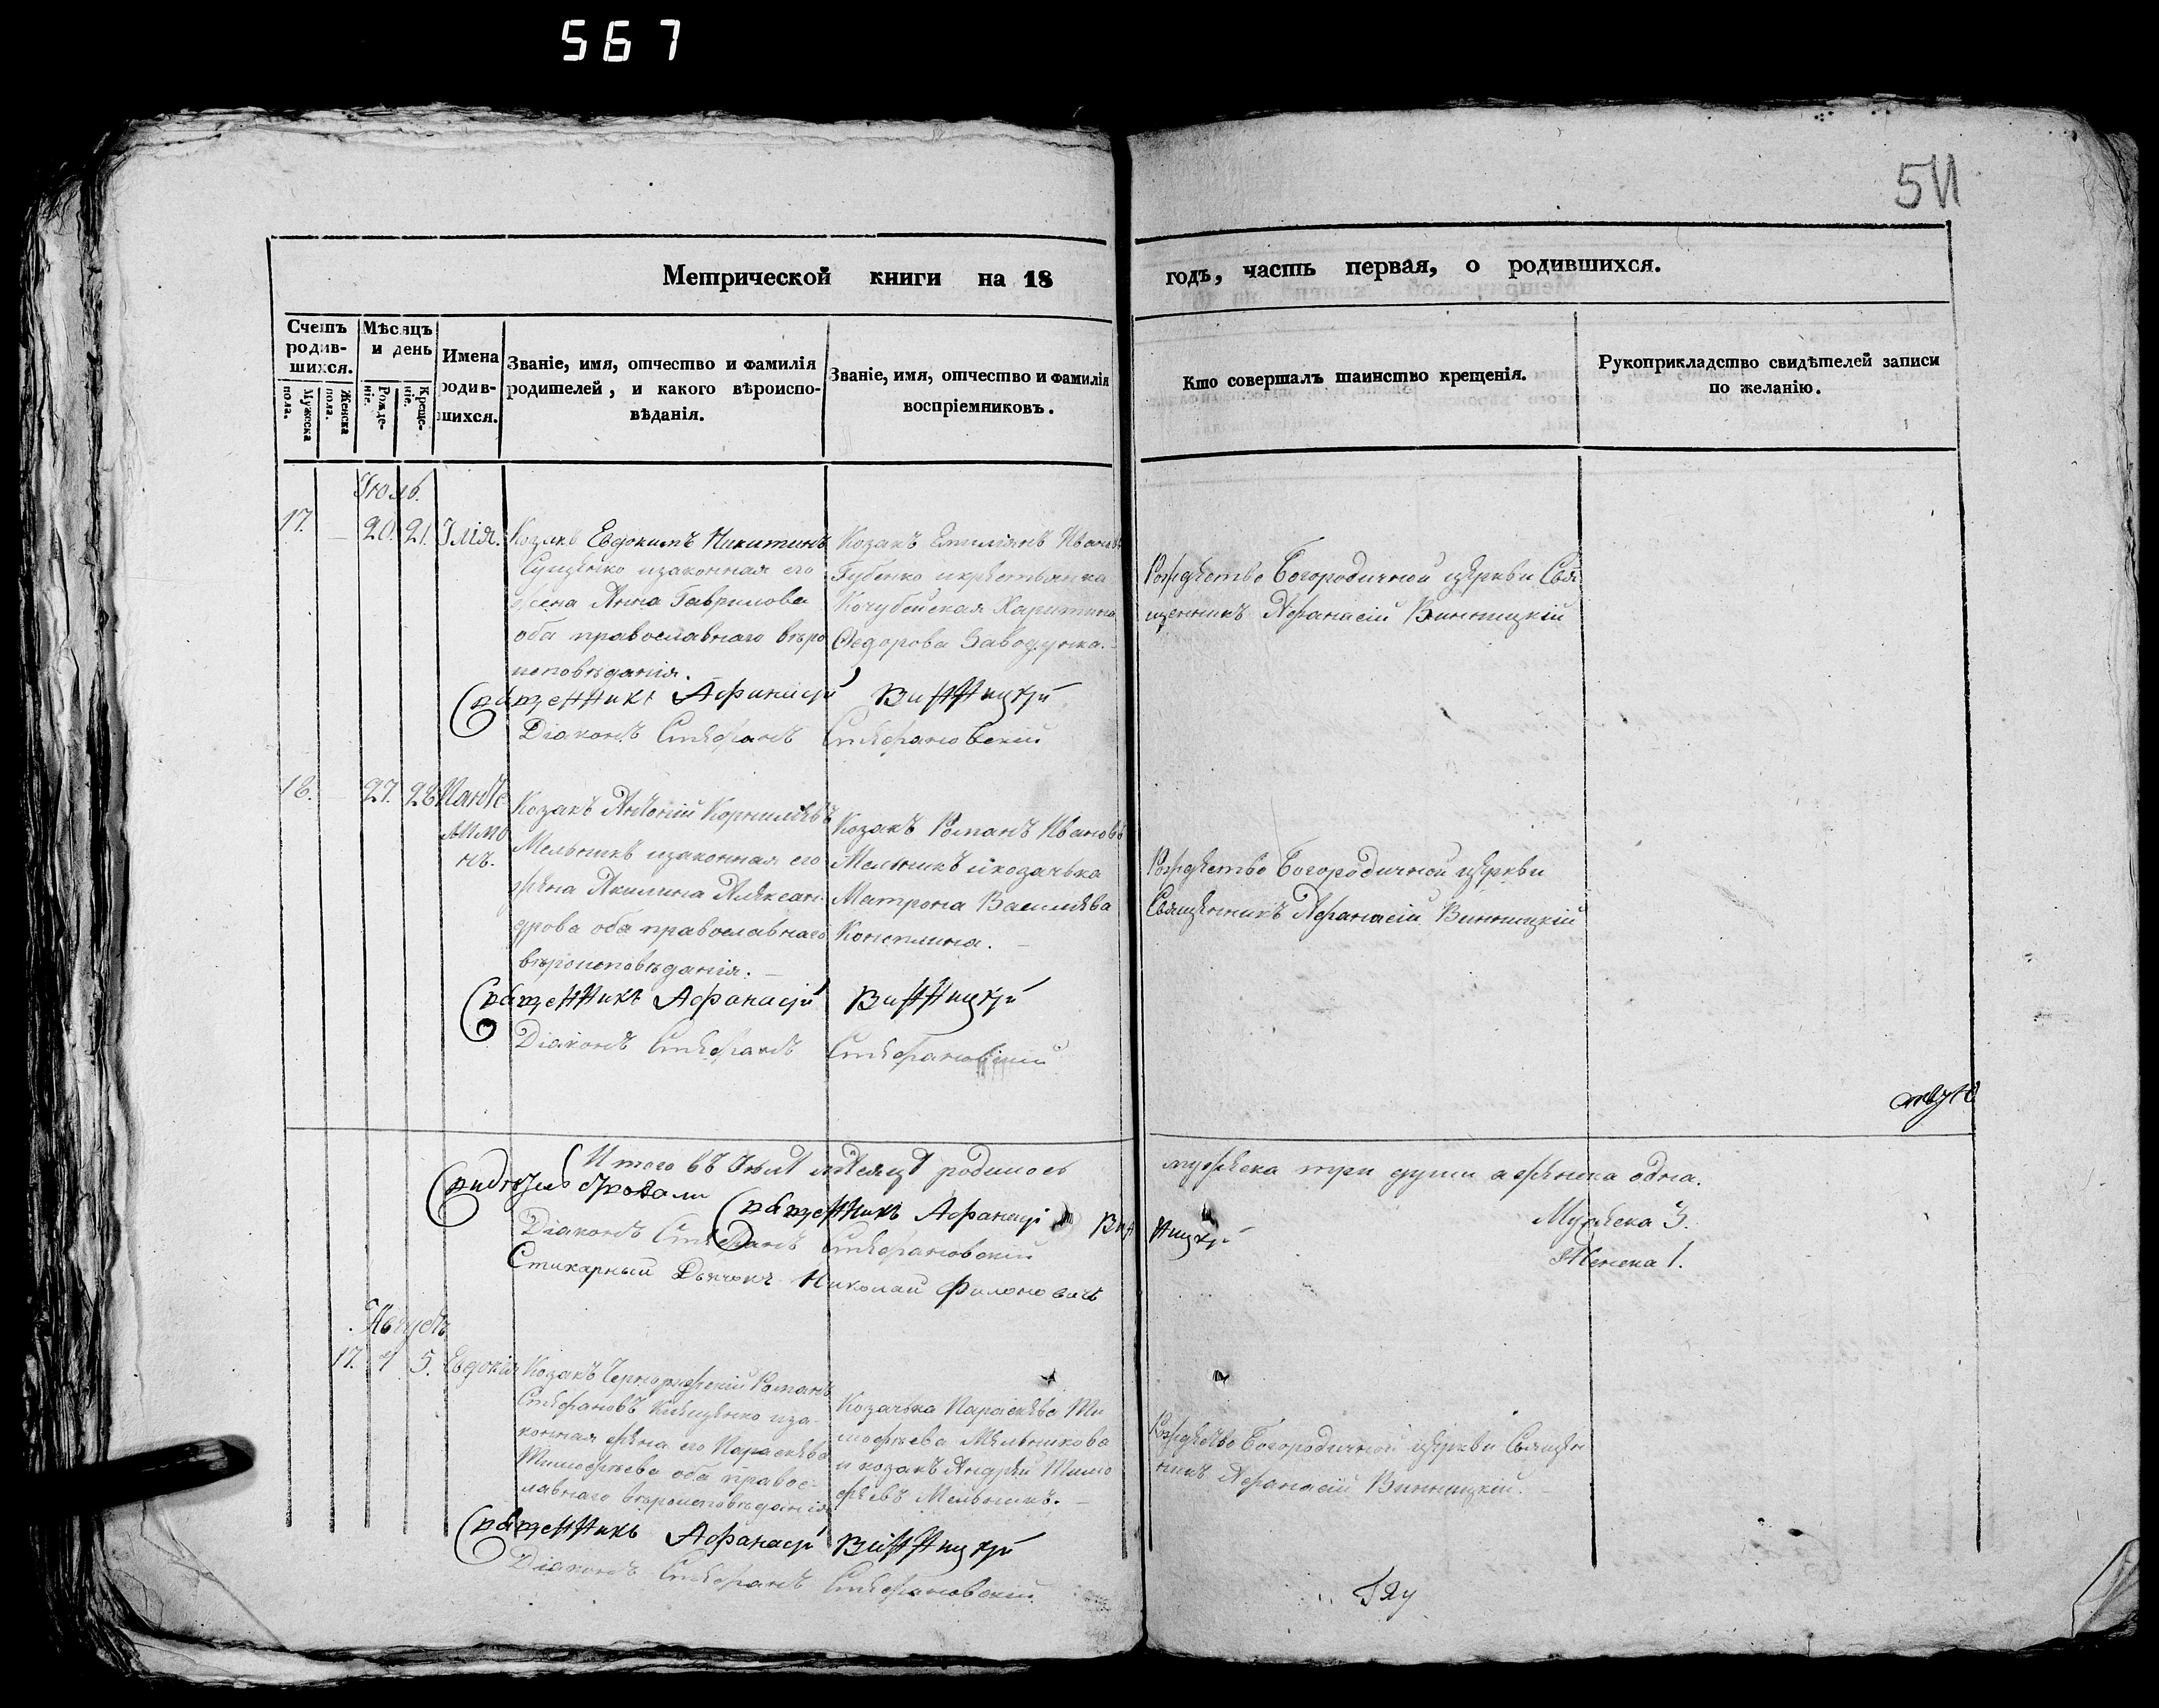 567
511
Метрической книги на 18 годъ, часть первая, о родившихся.
Счетъ родив-шихся.
Мужеска пола.
Женска пола.
Мѣсяцъ и день
Рожде-ніе.
Креще-ніе.
Имена родив-шихся.
Званіе, имя, отчество и фамилія родителей, и какого вѣроиспо-вѣданія.
Званіе, имя, отчество и фамилія воспріемниковъ.
Кто совершалъ таинство крещенія.
Рукоприкладство свидѣтелей записи по желанію.
Іюль.
17. 20. 21. Илія.
Козакъ Евдокимъ Никитинъ
изаконная его
жена Анна Гаврилова
оба православнаго вѣро
исповѣданія.
Козакъ Емиліянъ Ивановъ
Губенко икрестьянка
Кочубейская Харитина
Федорова
Рождество Богородичной церкви Свя
щенникъ Афанасій Винницкій
Священникъ Афанасій Винницкій
Діаконъ Стефанъ Стефановскій
18. 27. 28. Панте
лимо
нъ.
Козакъ Антоній Корнильевъ
Мельникъ изаконная его
жена Акилина Алексан
дрова оба православнаго
вѣроисповѣданія.
Козакъ Романъ Ивановъ
Мельникъ икозачька
Матрона Васильева
Рождество Богородичной церкви
Священникъ Афанасій Винницкій
Священникъ Афанасій Винницкій
Діаконъ Стефанъ Стефановскій
Итого въ Іюлѣ мѣсяцѣ родилось мужеска три души а женска одна.
Мужеска 3.
Женска 1.
Священникъ Афанасій Винницкій
Діаконъ Стефанъ Стефановскій
Стихарный Дьячокъ Николай Филоновичъ
Августъ
17. 4 5. Евдокія
Козакъ Романъ
Стефановъ иза-
конная жена его Параскева
Тимофѣева оба правос-
лавнаго вѣроисповѣданія
Козачька Параскева Ти
мофѣева Мельникова
и козакъ Андрей Тимо
фѣевъ Мельникъ.
Рождество Богородичной церкви Священ
никъ Афанасій Винницкій.
Священникъ Афанасій Винницкій
Діаконъ Стефанъ Стефановскій